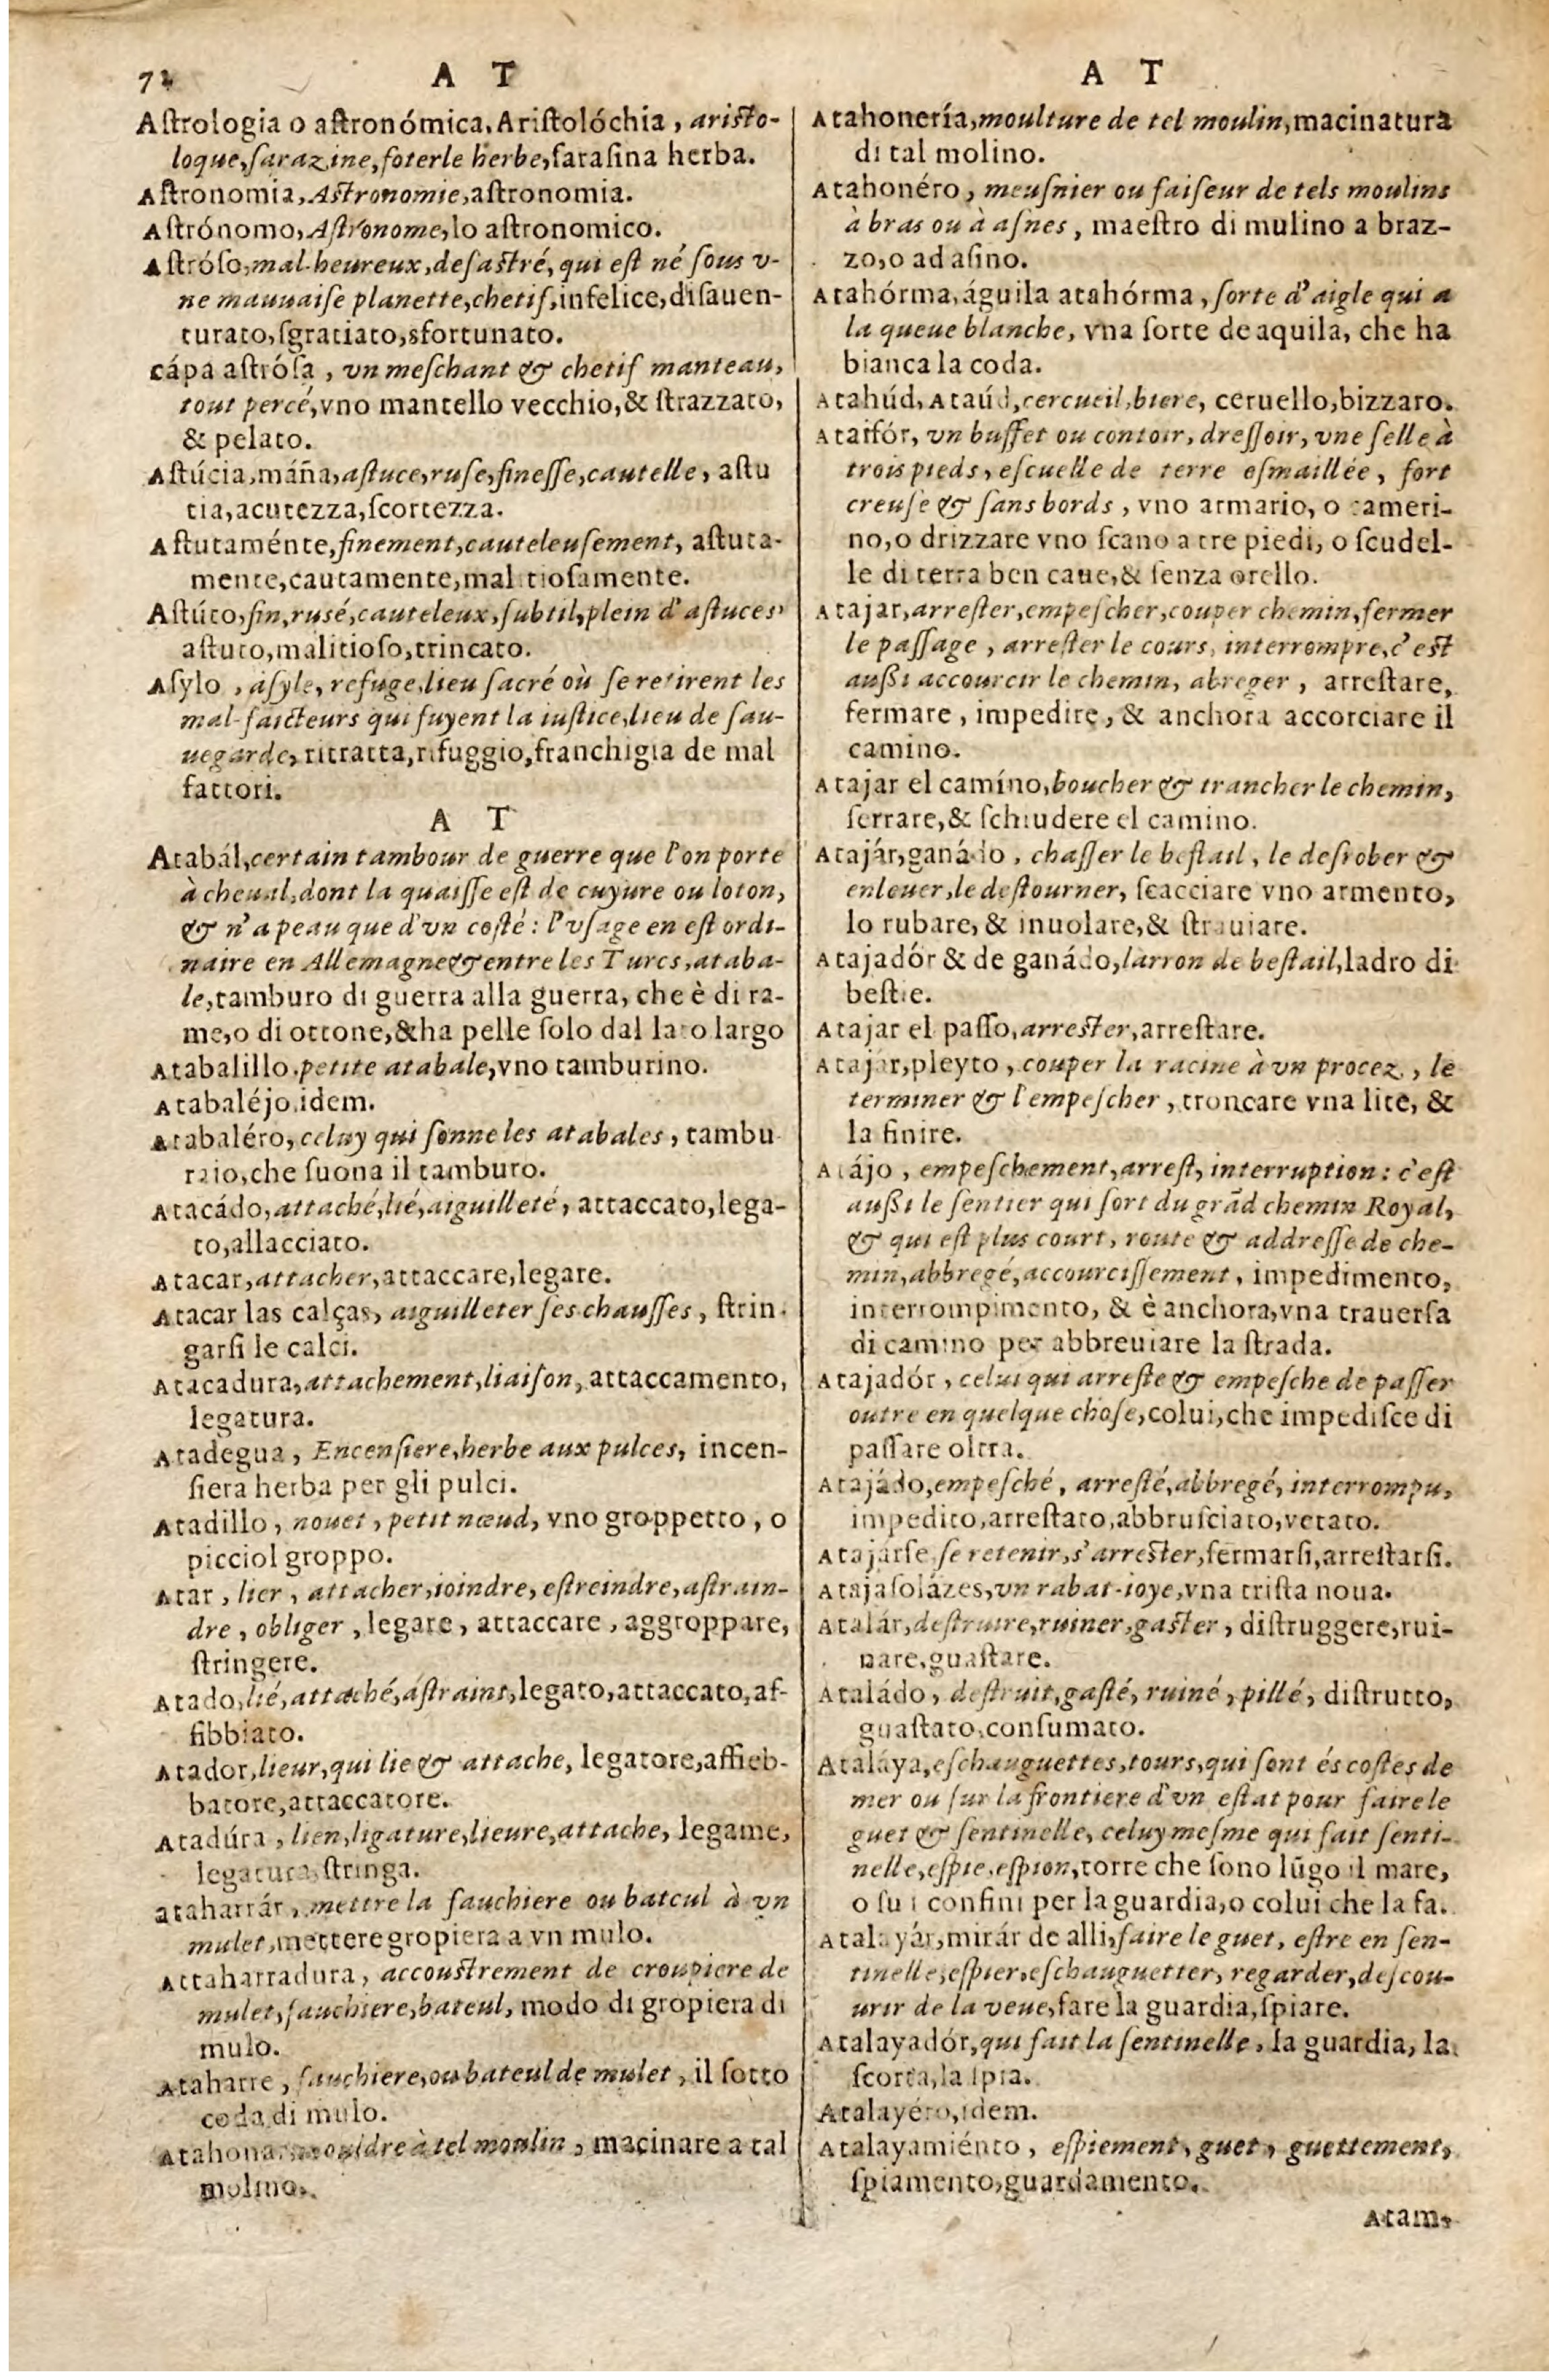 72 A T
Aſtrologia o aſtronómica, Ariſtolóchia, ariſto-
loque, ſarazine, foterle herbe, ſaraſina herba.
Aſtronomia, Aſtronomie, aſtronomia.
Aſtrónomo, Aſtronome, lo aſtronomico.
Aſtróſo, mal-heureux, deſaſtré, qui eſt né ſous v-
ne mauuaiſe planette, chetif, infelice, diſauen-
turato, ſgratiato, sfortunato.
cápa aſtróſa, vn meſchant & chetif manteau,
tout percé, vno mantello vecchio, & ſtrazzato,
& pelato.
Aſtúcia, máña, aſtuce, ruſe, fineſſe, cautelle, aſtu
tia, acutezza, ſcortezza.
Aſtutaménte, finement, cauteleuſement, aſtuta-
mente, cautamente, malitioſamente.
Aſtúto, fin, ruſé, cauteleux, ſubtil, plein d'aſtuces,
aſtuto, malitioſo, trincato.
Aſylo, aſyle, refuge, lieu ſacré où ſe retirent les
mal-faicteurs qui fuyent la iuſtice, lieu de ſau-
uegarde, ritratta, rifuggio, franchigia de mal
fattori.
A T
Atabál, certain tambour de guerre que l'on porte
à cheual, dont la quaiſſe eſt de cuyure ou loton,
& n'a peau que d'vn coſté: l'vſage en eſt ordi-
naire en Allemagne & entre les Turcs, ataba-
le, tamburo di guerra alla guerra, che è di ra-
me, o di ottone, & ha pelle ſolo dal lato largo
Atabalillo, petite atabale, vno tamburino.
Atabaléjo, idem.
Atabaléro, celuy qui ſonne les atabales, tambu
raio, che ſuona il tamburo.
Atacádo, attaché, lié, aiguilleté, attaccato, lega-
to, allacciato.
Atacar, attacher, attaccare, legare.
Atacar las calças, aiguilleter ſes chauſſes, ſtrin-
garſi le calci.
Atacadura, attachement, liaiſon, attaccamento,
legatura.
Atadegua, Encenſiere, herbe aux pulces, incen-
ſiera herba per gli pulci.
Atadillo, nouet, petit nœud, vno groppetto, o
picciol groppo.
Atar, lier, attacher, ioindre, eſtreindre, aſtrain-
dre, obliger, legare, attaccare, aggroppare,
ſtringere.
Atado, lié, attaché, aſtraint, legato, attaccato, af-
fibbiato.
Atador, lieur, qui lie & attache, legatore, affieb-
batore, attaccatore.
Atadúra, lien, ligature, lieure, attache, legame,
legatura, ſtringa.
ataharrár, mettre la fauchiere ou batcul à vn
mulet, mettere gropiera a vn mulo.
Attaharradura, accouſtrement de croupiere de
mulet, fauchiere, bateul, modo di gropiera di
mulo.
Ataharre, fauchiere, ou bateul de mulet, il ſotto
coda di mulo.
Atahonar, mouldre à tel moulin, macinare a tal
molino.
A T
Atahonería, moulture de tel moulin, macinatura
di tal molino.
Atahonéro, meuſnier ou faiſeur de tels moulins
à bras ou à aſnes, maeſtro di mulino a braz-
zo, o ad aſino.
Atahórma, águila atahórma, ſorte d'aigle qui a
la queue blanche, vna ſorte de aquila, che ha
bianca la coda.
Atahúd, Ataúd, cercueil, biere, ceruello, bizzaro.
Ataifór, vn buffet ou contoir, dreſſoir, vne ſelle à
trois pieds, eſcuelle de terre eſmaillée, fort
creuſe & ſans bords, vno armario, o cameri-
no, o drizzare vno ſcano a tre piedi, o ſcudel-
le di terra ben caue, & ſenza orello.
Atajar, arreſter, empeſcher, couper chemin, fermer
le paſſage, arreſter le cours, interrompre, c'eſt
auſſi accourcir le chemin, abreger, arreſtare,
fermare, impedire, & anchora accorciare il
camino.
Atajar el camíno, boucher & trancher le chemin,
ſerrare, & ſchiudere el camino.
Atajár, ganádo, chaſſer le beſtail, le deſrober &
enleuer, le deſtourner, ſcacciare vno armento,
lo rubare, & inuolare, & ſtrauiare.
Atajadór & de ganádo, larron de beſtail, ladro di
beſtie.
Atajar el paſſo, arreſter, arreſtare.
Atajár, pleyto, couper la racine à vn procez, le
terminer & l'empeſcher, troncare vna lite, &
la finire.
Atájo, empeſchement, arreſt, interruption: c'eſt
auſſi le ſentier qui ſort du grãd chemin Royal,
& qui eſt plus court, route & addreſſe de che-
min, abbregé, accourciſſement, impedimento,
interrompimento, & è anchora, vna trauerſa
di camino per abbreuiare la ſtrada.
Atajadór, celui qui arreſte & empeſche de paſſer
outre en quelque choſe, colui, che impediſce di
paſſare oltra.
Atajádo, empeſché, arreſté, abbregé, interrompu,
impedito, arreſtato, abbruſciato, vetato.
Atajárſe, ſe retenir, s'arreſter, fermarſi, arreſtarſi.
Atajaſolázes, vn rabat-ioye, vna triſta noua.
Atalár, deſtruire, ruiner, gaſter, diſtruggere, rui-
nare, guaſtare.
Ataládo, deſtruit, gaſté, ruiné, pillé, diſtrutto,
guaſtato, conſumato.
Ataláya, eſchauguettes, tours, qui ſont és coſtes de
mer ou ſur la frontiere d'vn eſtat pour faire le
guet & ſentinelle, celuy meſme qui fait ſenti-
nelle, eſpie, eſpion, torre che ſono lũgo il mare,
o ſu i confini per la guardia, o colui che la fa.
Atalayár, mirár de alli, faire le guet, eſtre en ſen-
tinelle, eſpier, eſchauguetter, regarder, deſcou-
urir de la veue, fare la guardia, ſpiare.
Atalayadór, qui fait la ſentinelle, la guardia, la
ſcorta, la ſpia.
Atalayéro, idem.
Atalayamiénto, eſpiement, guet, guettement,
ſpiamento, guardamento.
Atam-